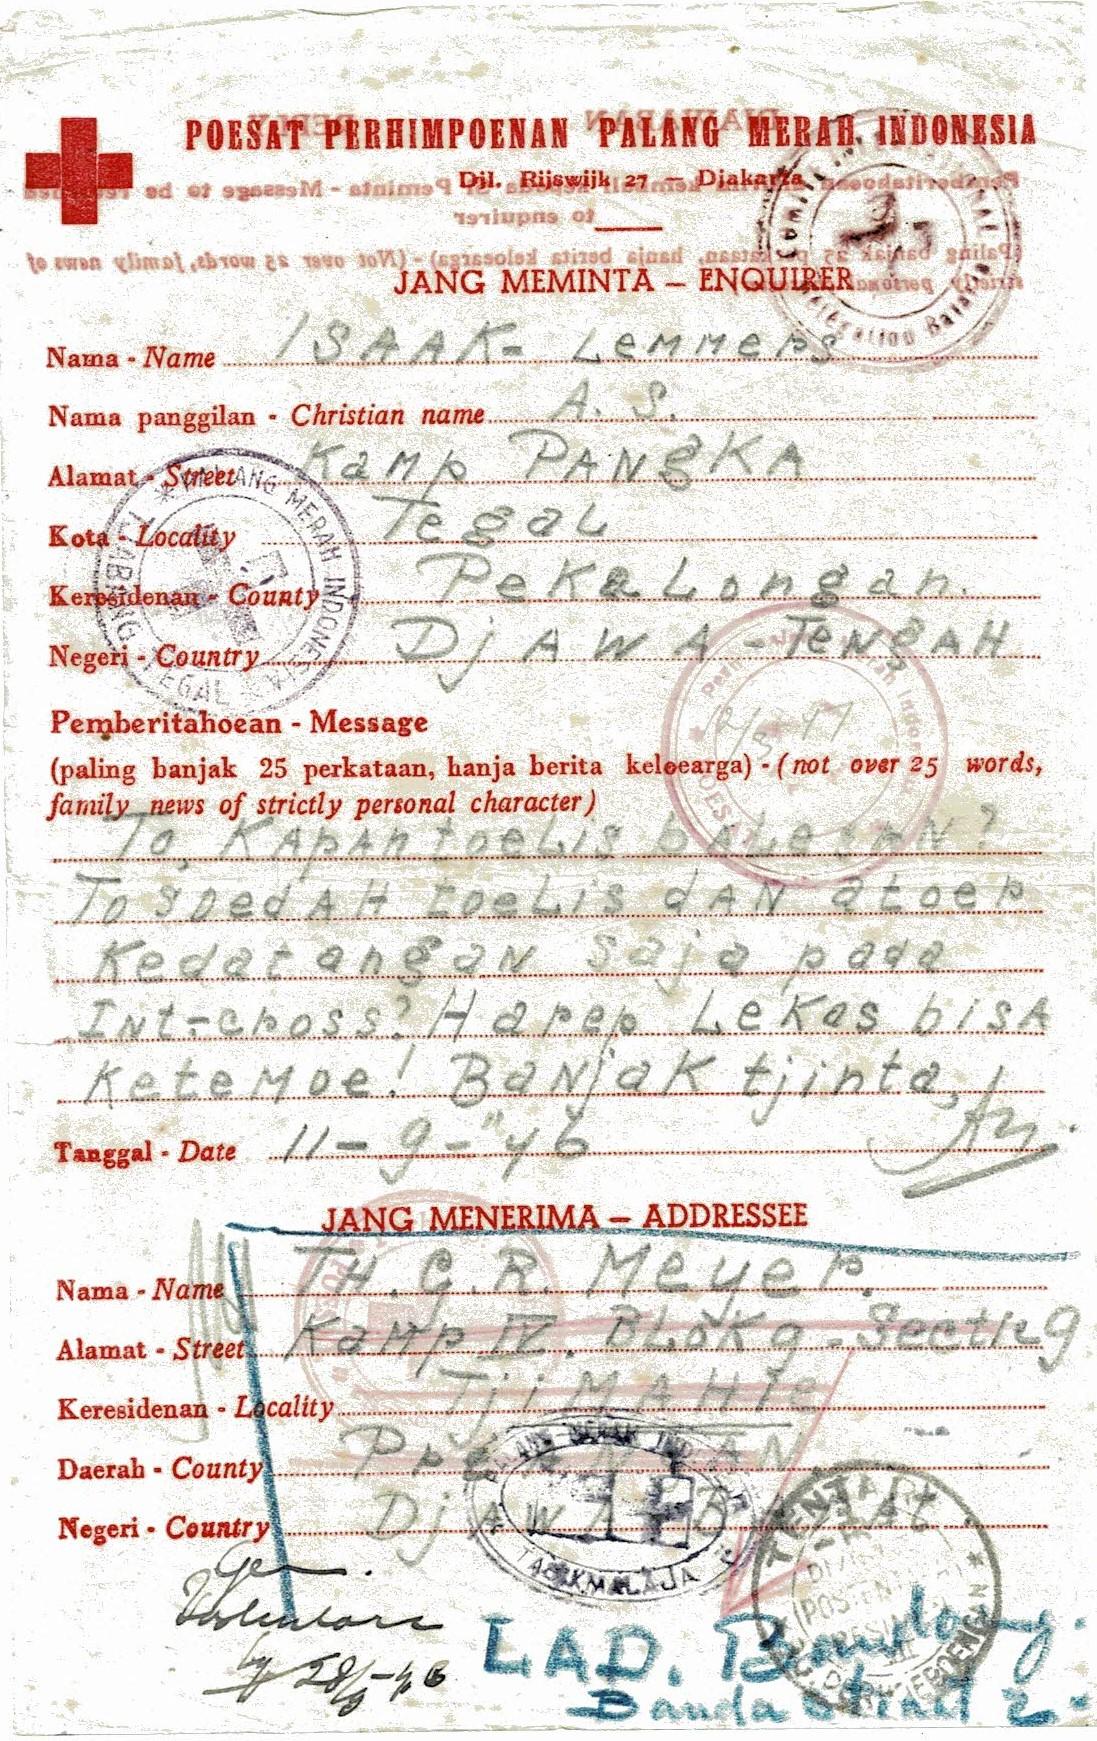 POESAT PERHIMPOENAN PALANG MERAH INDONESIA
Djl. Rijswijk 27 — Djakarta
JANG MEMINTA — ENQUIRER
Nama - Name ISAAK- Lemmers
Nama panggilan - Christian name A. S.
Alamat - Street Kamp PANgKA
Kota - Locality Tegal
Keresidenan - County Pekalongan.
Negeri - Country DjAWA-TENgAH
Pemberitahoean - Message
(paling banjak 25 perkataan, hanja berita keloearga) - (not over 25 words,
family news of strictly personal character)
To, KApAn toeLis bALesAN?
To soedAH toeLis dAN atoer
Kedatangan saja pada
Int-cross? Harep Lekas bisA
Ketemoe! BaNjaK tjinta,
Tanggal - Date 11-9-"46
JANG MENERIMA — ADDRESSEE
Nama - Name TH. G. R. Meyer.
Alamat - Street Kamp IV. BLok 9-
Keresidenan - Locality TjiMAHie
Daerah - County
Negeri - Country DjAWA BARAt
PALANG MERAH INDONESIA
TJABANG TEGAL
PALANG MERAH INDONESIA
TASIKMALAJA
TENTARA
28/9-46
LAD. Bandoeng.
Banda straat 2